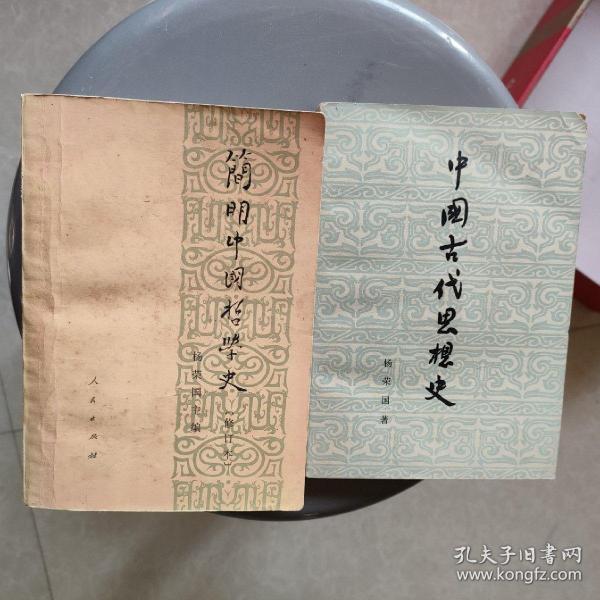 簡明中国哲學史
（修订本）
杨荣国主编
人民出版社
中國古代思想史
杨荣国著
孔夫子旧书网
www.kongfz.com